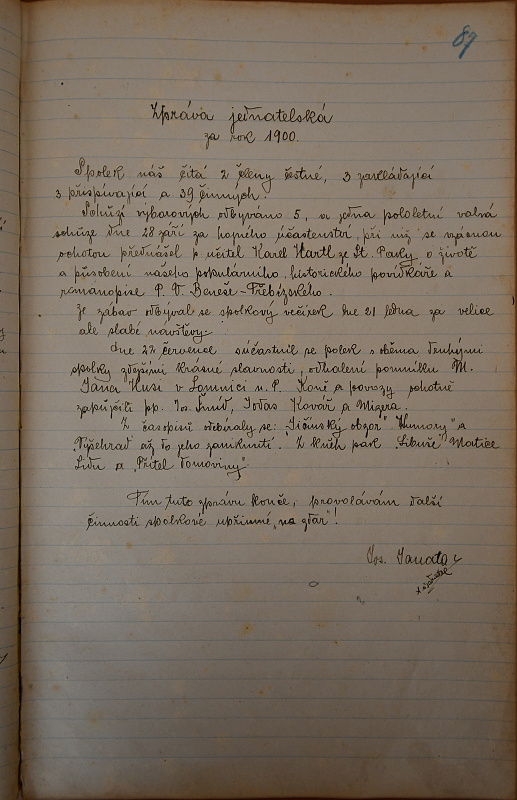 89
Zpráva jednatelská
za rok 1900.
Spolek náš čítá 2 členy čestné, 3 zakládající
3 přispívající a 39 činných.
Schůzí výborových odbýváno 5, a jedna pololetní valná
schůze dne 28 září za hojného účastenství, při níž se vzácnou
ochotou přednášel p. učitel Karel Hartl ze St. Paky o životě
a působení našeho populárního, historického povídkáře a
romanopisce P. V. Beneše-Třebízského.
Ze zábav odbýval se spolkový večírek dne 21 ledna za velice
ale slabé návštěvy.
Dne 22 července súčastnil se spolek s oběma druhými
spolky zdejšími krásné slavnosti, odhalení pomníku M.
Jana Husi v Lomnici n. P. Koně a povozy ochotně
zapůjčili pp. Jos. Šmíd, Kovář a Mizera.
Z časopisů odebíraly se: "Jičínský obzor" "Humory" a
"Vyšehrad" až do jeho zaniknutí. Z knih pak "Libuše" Matice
Lidu a "Přítel domoviny"
Tím tuto zprávu konče, provolávám další
činnosti spolkové upřímné "na zdar"!
Jos. Janata